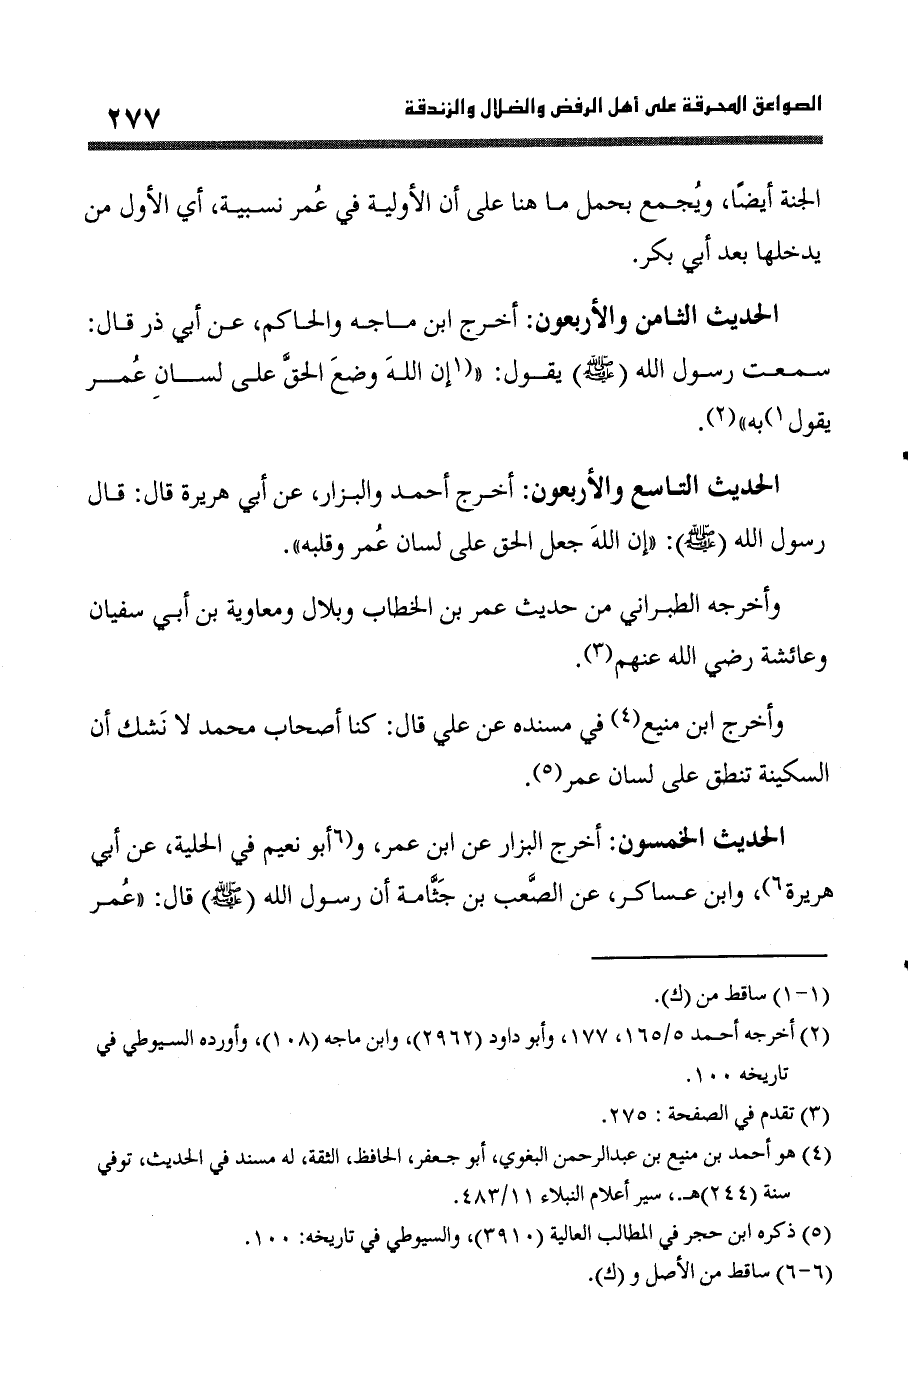 الصواعق المحرقة على أهل الرفض والضلال والزندقة
٢٧٧
الجنة أيضًا، ويُجمع بحمل ما هنا على أن الأولية في عُمر نسبية، أي الأول من
يدخلها بعد أبي بكر.
الحديث الثامن والأربعون: أخرج ابن ماجه والحاكم، عن أبي ذر قال:
سمعت رسول الله (ﷺ) يقول: «(١إن اللهَ وضعَ الحقَّ على لسانِ عُمر
يقول ١)به»(٢).
الحديث التاسع والأربعون: أخرج أحمد والبزار، عن أبي هريرة قال: قال
رسول الله (ﷺ): «إن اللهَ جعل الحق على لسان عُمر وقلبه».
وأخرجه الطبراني من حديث عمر بن الخطاب وبلال ومعاوية بن أبي سفيان
وعائشة رضي الله عنهم(٣).
وأخرج ابن منيع(٤) في مسنده عن علي قال: كنا أصحاب محمد لا نَشك أن
السكينة تنطق على لسان عمر(٥).
الحديث الخمسون: أخرج البزار عن ابن عمر، و(٦أبو نعيم في الحلية، عن أبي
هريرة٦)، وابن عساكر، عن الصَّعب بن جَثَّامة أن رسول الله (ﷺ) قال: «عُمر
(١-١) ساقط من (ك).
(٢) أخرجه أحمد ١٦٥/٥، ١٧٧، وأبو داود (٢٩٦٢)، وابن ماجه (١٠٨)، وأورده السيوطي في
تاريخه ١٠٠.
(٣) تقدم في الصفحة : ٢٧٥.
(٤) هو أحمد بن منيع بن عبدالرحمن البغوي، أبو جعفر، الحافظ، الثقة، له مسند في الحديث، توفي
سنة (٢٤٤)هـ.، سير أعلام النبلاء ٤٨٣/١١.
(٥) ذكره ابن حجر في المطالب العالية (٣٩١٠)، والسيوطي في تاريخه: ١٠٠.
(٦-٦) ساقط من الأصل و (ك).